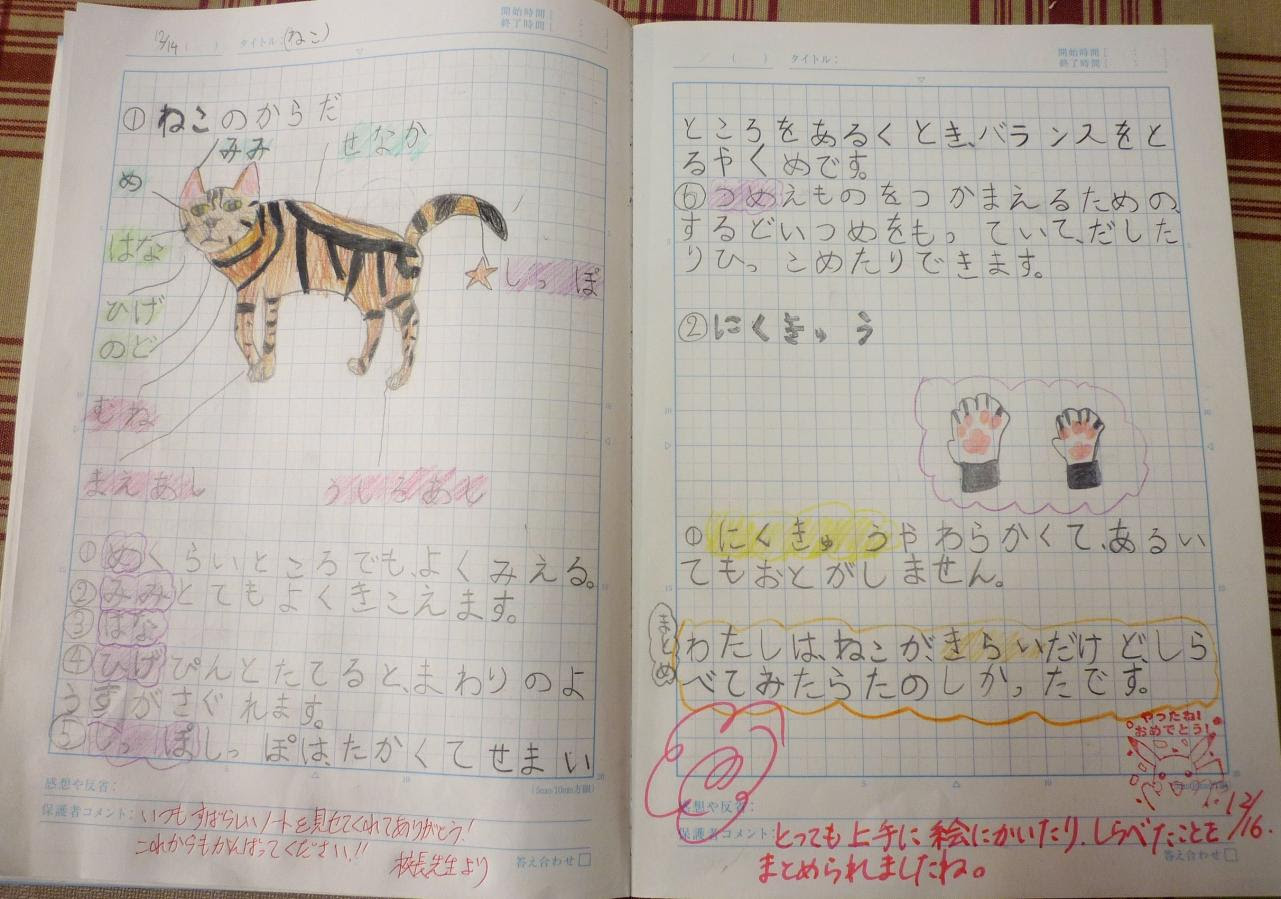 12/14 ( ) タイトル:(ねこ)
開始時間
終了時間
①ねこのからだ
みみ
せなか
め
はな
しっぽ
ひげ
のど
むね
まえあし
うしろあし
①めくらいところでも、よくみえる。
②みみとてもよくきこえます。
③はな
④ひげぴんとたてると、まわりのよ
うすがさぐれます。
⑤しっぽしっぽは、たかくてせまい
感想や反省:
(5mm/10mm方眼)
保護者コメント:いつもすばらしいノートを見せてくれてありがとう!
これからもがんばってください!!
校長先生より
答え合わせ
/ ( ) タイトル:
開始時間
終了時間
ところをあるくとき、バランスをと
るやくめです。
⑥つめえものをつかまえるための、
するどいつめをもっていて、だした
りひっこめたりできます。
②にくきゅう
①にくきゅうやわらかくて、あるい
てもおとがしません。
まとめ
わたしは、ねこが、きらいだけど、しら
べてみたらたのしかったです。
やったね!
おめでとう!
感想や反省:
12/16.
保護者コメント:とっても上手に絵にかいたり、しらべたことを
まとめられましたね。
答え合わせ